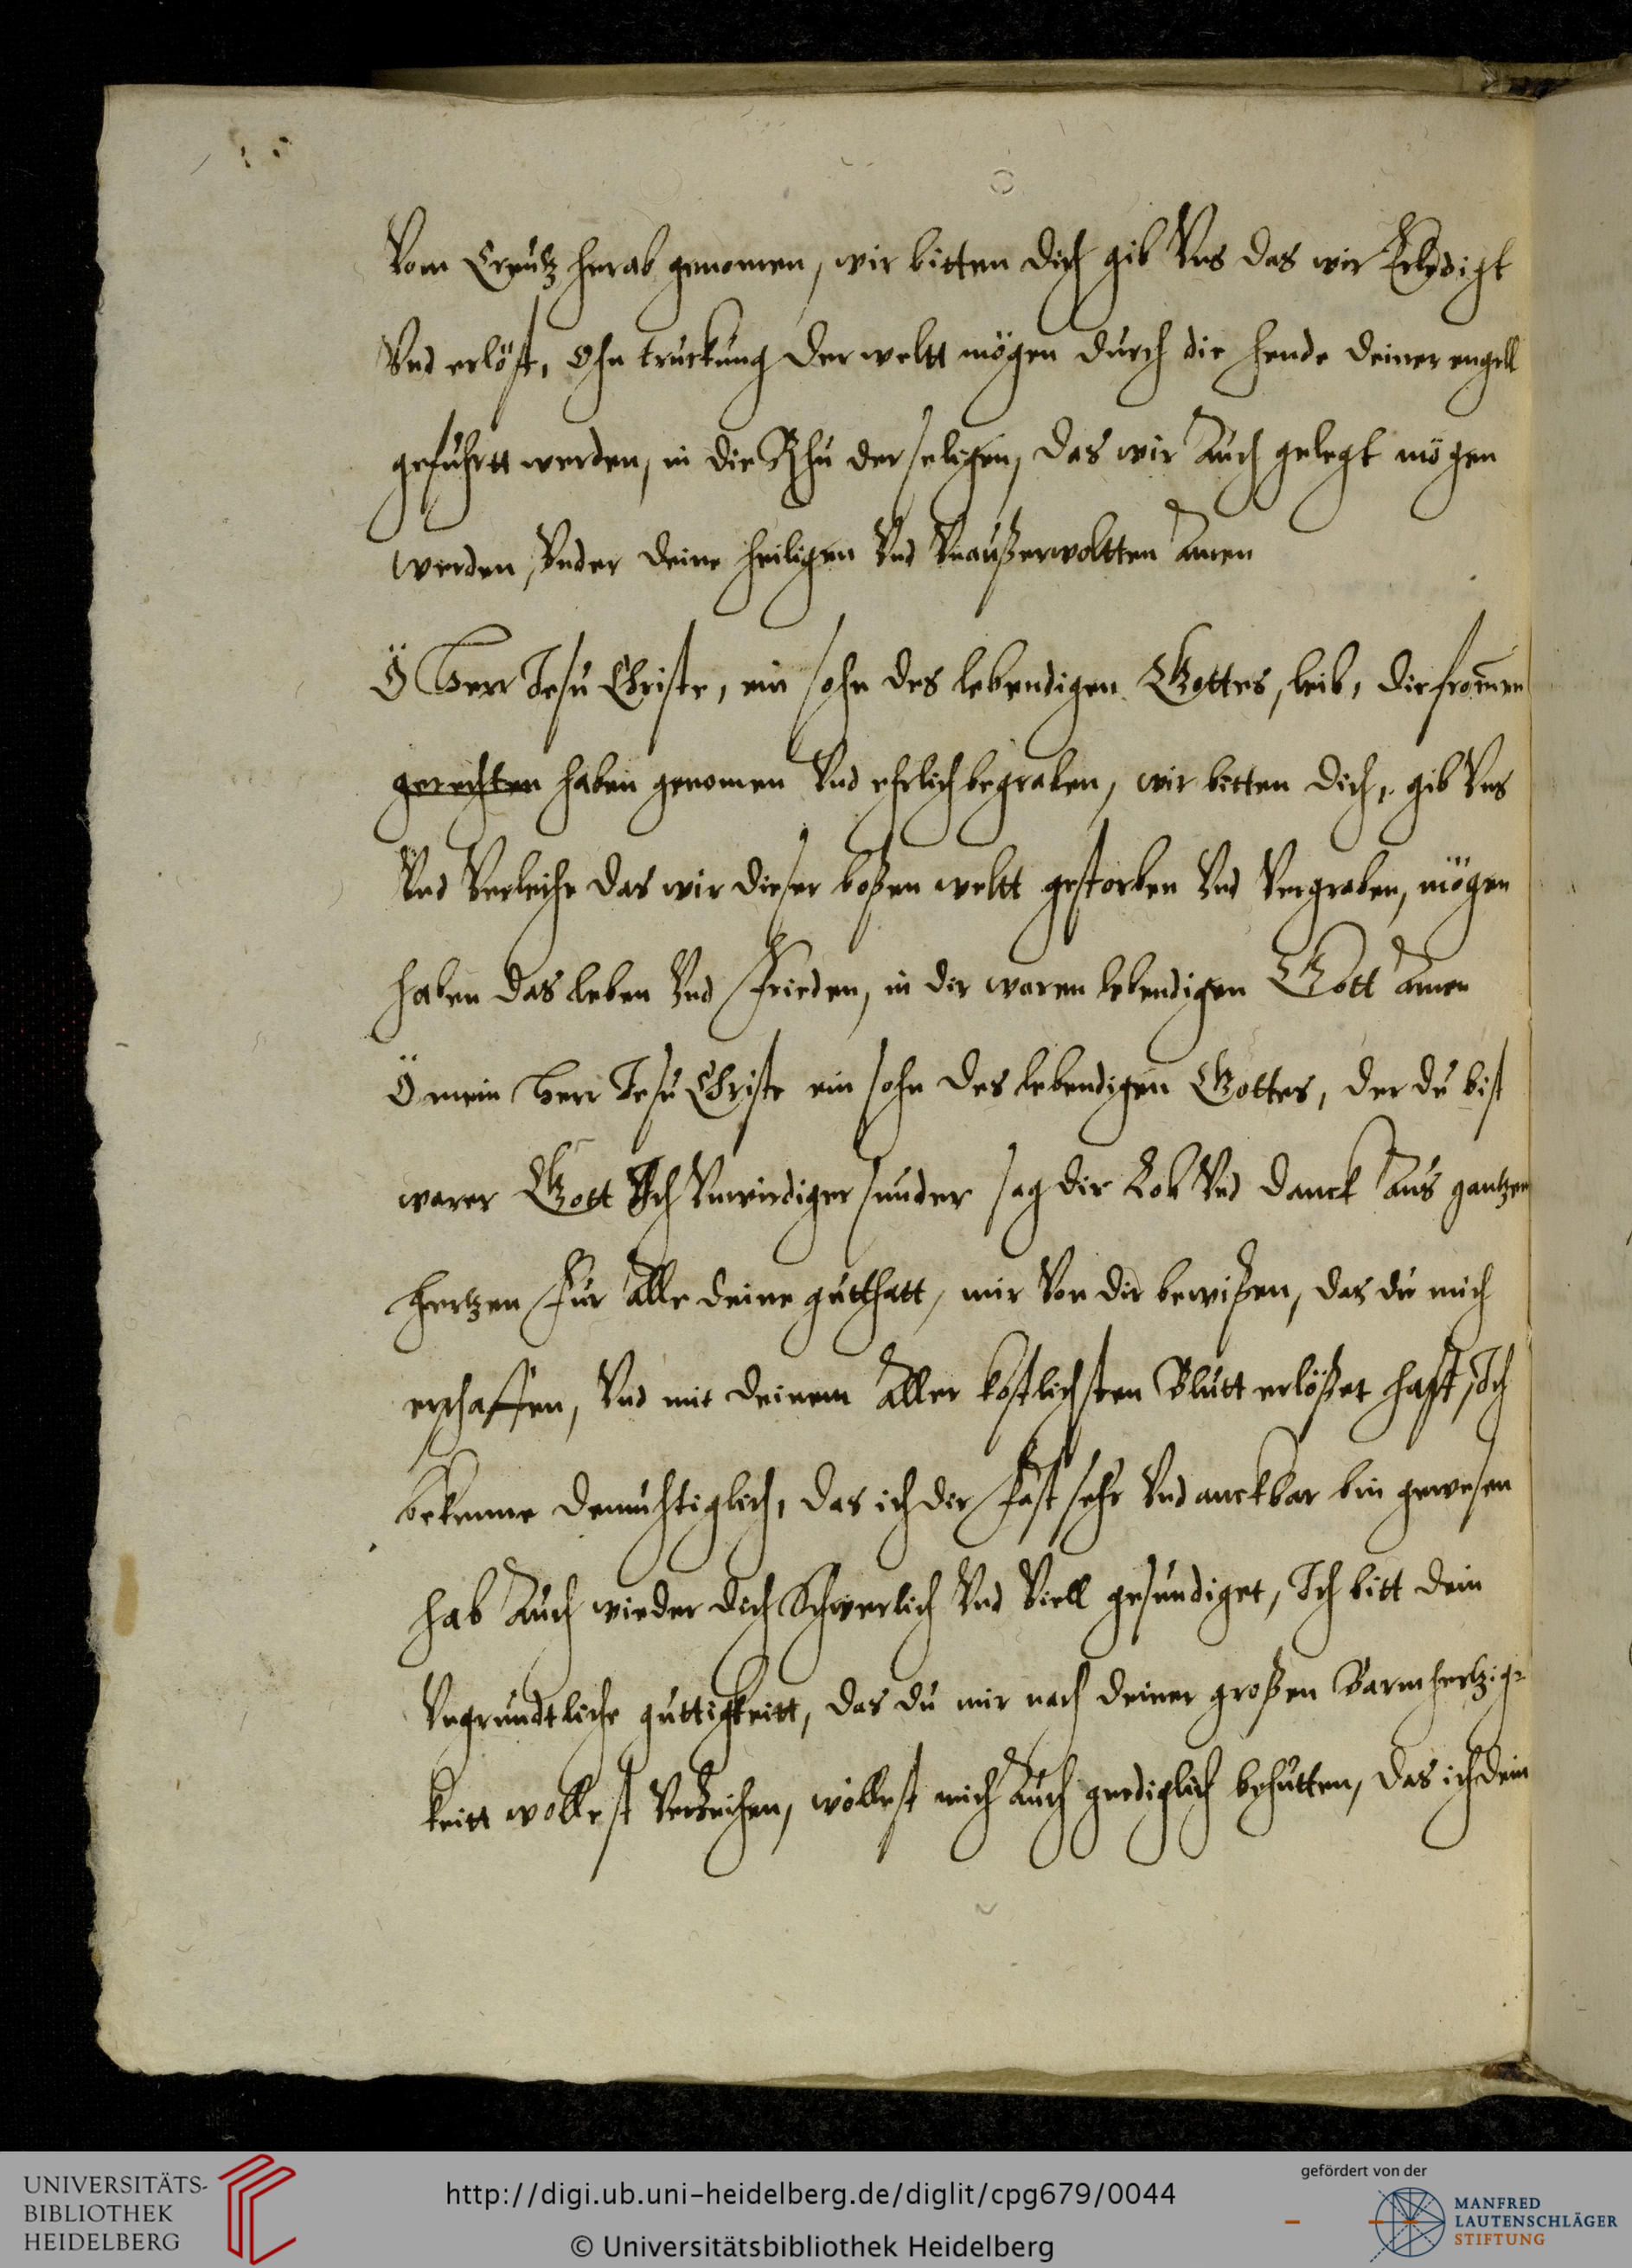 Vom Creutz herab genomen, wir bitten dich gib Vns das wir Erledigt
Vnd erlöst, Ohn truckung der weltt mögen durch die hende deiner engell
gefuhrtt werden, in die Rhu der seligen, das wir Auch gelegt mögen
werden, Vnder deine heiligen Vnd Vnaußerwoltten Amen
Ö Herr Jesu Christe, ein sohn des lebendigen Gottes, leib, die fromen
gerechten haben genomen Vnd ehrlich begraben, wir bitten dich, gib Vns
Vnd Verleihe das wir dieser boßen weltt gestorben Vnd Vergraben, mögen
haben das leben Vnd Frieden, in dir waren lebendigen Gott Amen
Ö mein Herr Jesu Christe ein sohn des lebendigen Gottes, der du bist
warer Gott Ich Vnwirdiger sunder sag dir Lob Vnd danck Aus gantzen
hertzen Für Alle deine gutthatt, mir Von dir bewißen, das du mich
erschaffen, Vnd mit deinem Aller kostlichsten Blutt erlößet hast, Ich
bekenne demuhtiglich, das ich dir Fast sehr Vndanckbar bin gewesen
hab Auch wieder dich Schwerlich Vnd Viell gesundiget, Ich bitt dein
Vngrundtliche guttigkeitt, das du mir nach deiner großen Barmhertzig-
keitt wollest Verzeihen, wöllest mich Auch gnediglich behutten, das ich dein
UNIVERSITÄTS-
BIBLIOTHEK
HEIDELBERG
http://digi.ub.uni-heidelberg.de/diglit/cpg679/0044
© Universitätsbibliothek Heidelberg
gefördert von der
MANFRED
LAUTENSCHLÄGER
STIFTUNG